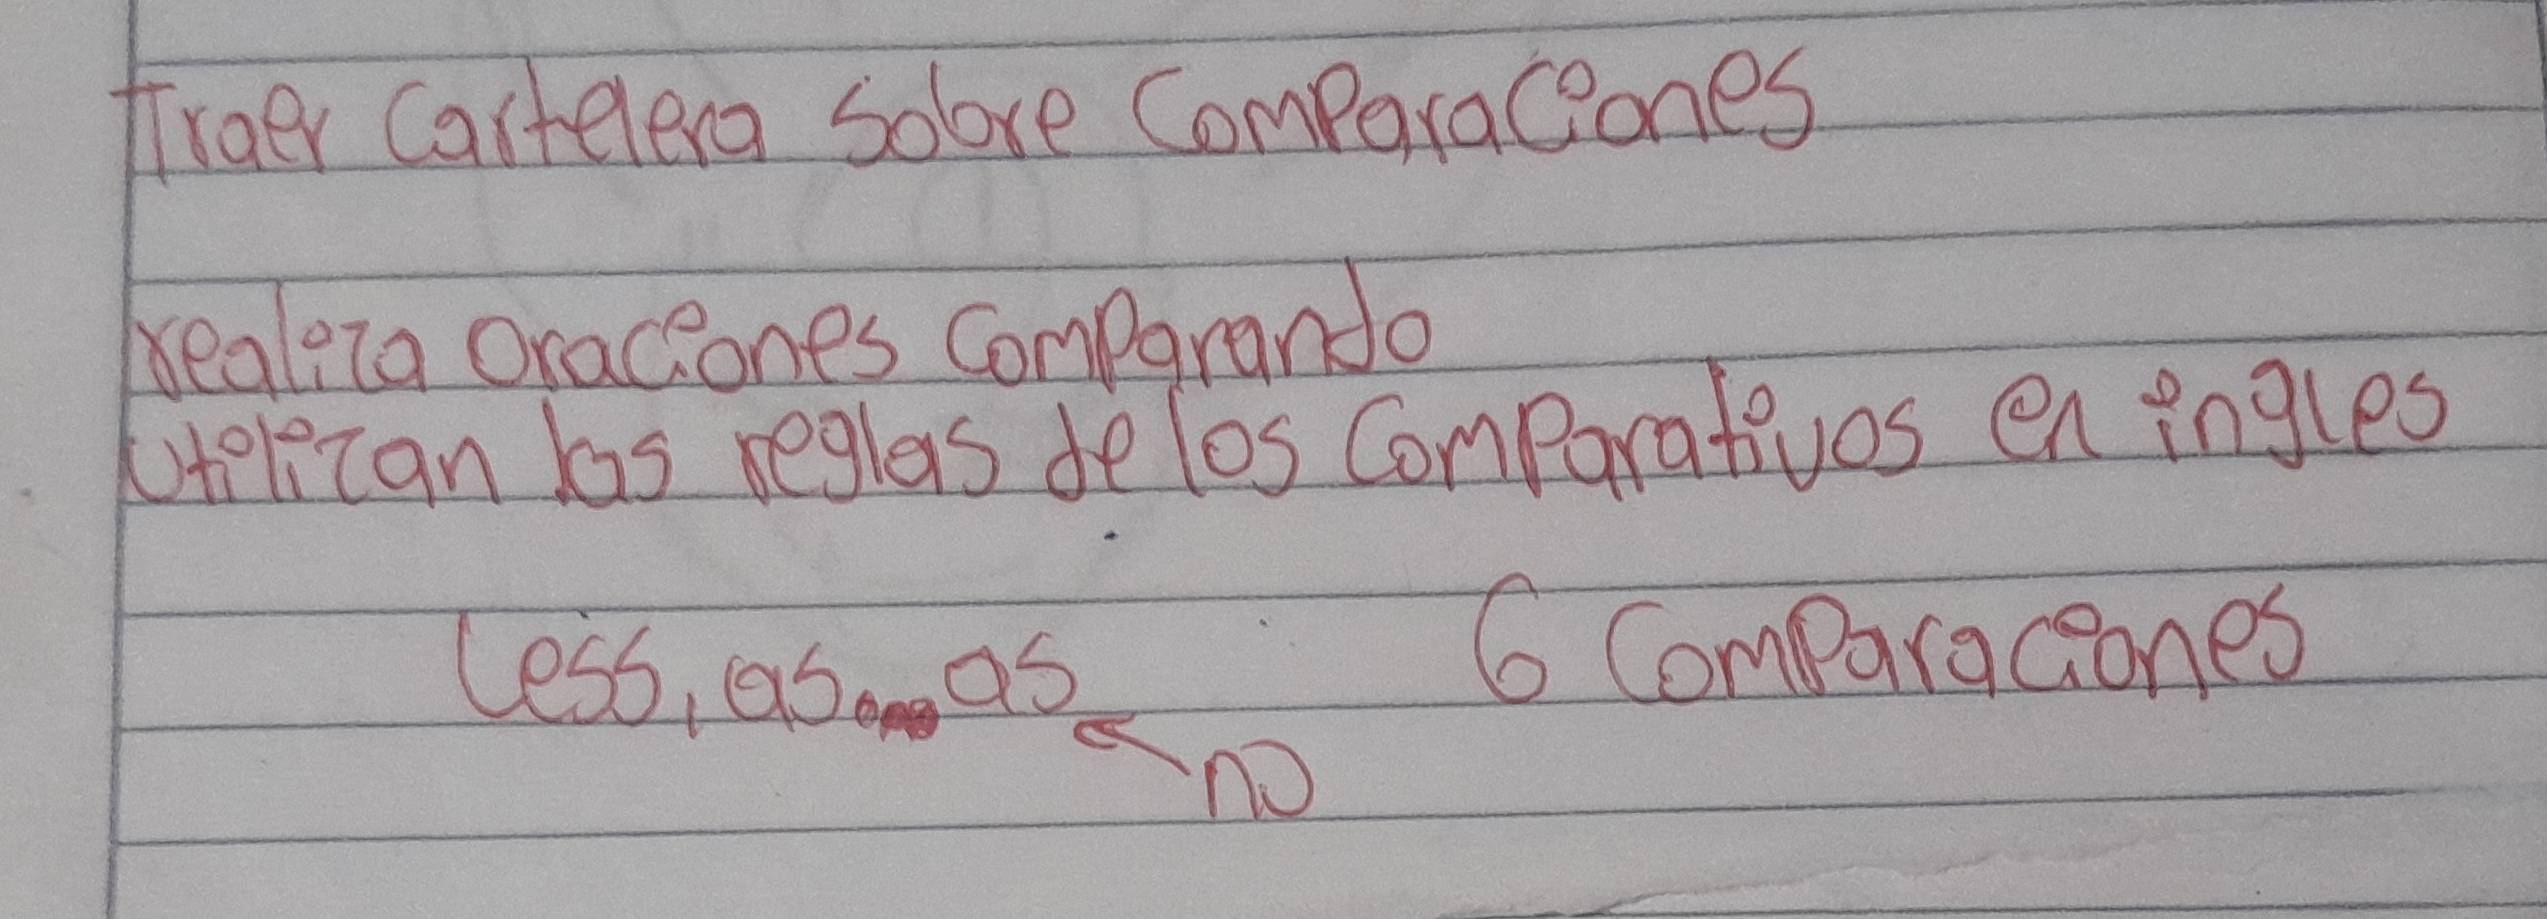 Traer Cartelera Sobre Comparaciones
realiza Oraciones Comparando
Utilizan las reglas de los Comparativos en ingles
Less, as...as 6 Comparaciones
no